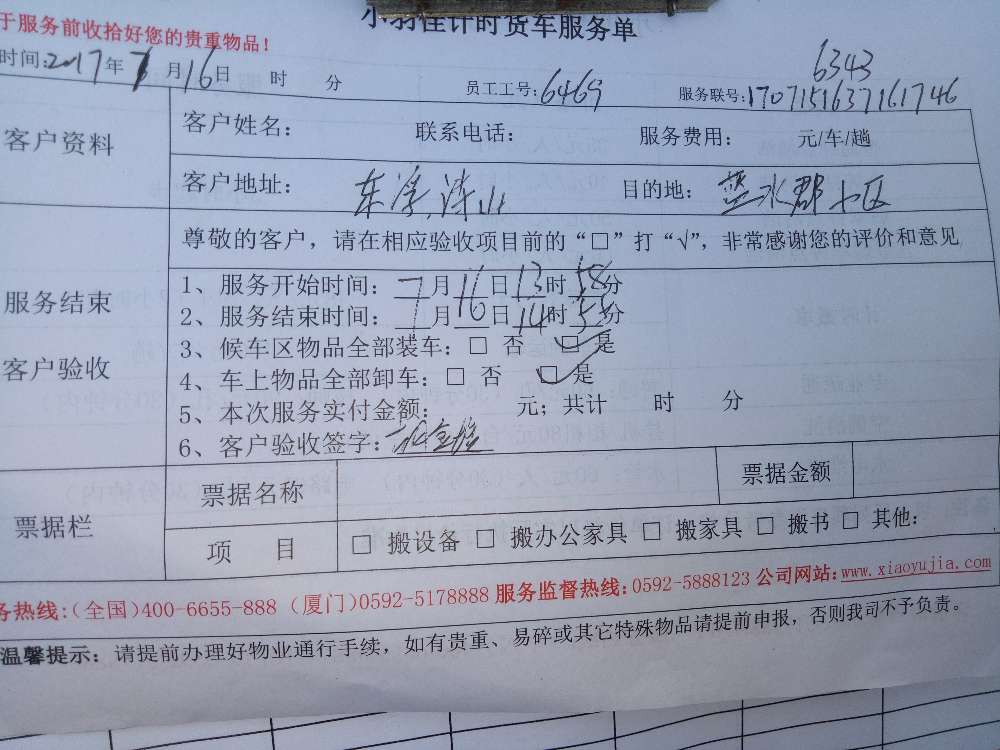 于服务前收拾好您的贵重物品!
小羽佳计时货车服务单
时间:2017年7月16日 时 分
员工工号:6469
6343
服务联号:1707151637161746
客户资料
客户姓名: 联系电话: 服务费用: 元/车/趟
客户地址: 东浮
目的地: 蓝水郡小区
服务结束
客户验收
尊敬的客户，请在相应验收项目前的“□”打“√”，非常感谢您的评价和意见
1、服务开始时间: 7月16日13时58分
2、服务结束时间: 月 日14时55分
3、候车区物品全部装车:□ 否 □ 是
4、车上物品全部卸车:□ 否 □ 是
5、本次服务实付金额: 元;共计 时 分
6、客户验收签字:
票据栏
票据名称 票据金额
项 目 □ 搬设备 □ 搬办公家具 □ 搬家具 □ 搬书 □ 其他:
务热线:(全国)400-6655-888 (厦门)0592-5178888 服务监督热线:0592-5888123 公司网站:www.xiaoyujia.com
温馨提示: 请提前办理好物业通行手续，如有贵重、易碎或其它特殊物品请提前申报，否则我司不予负责。